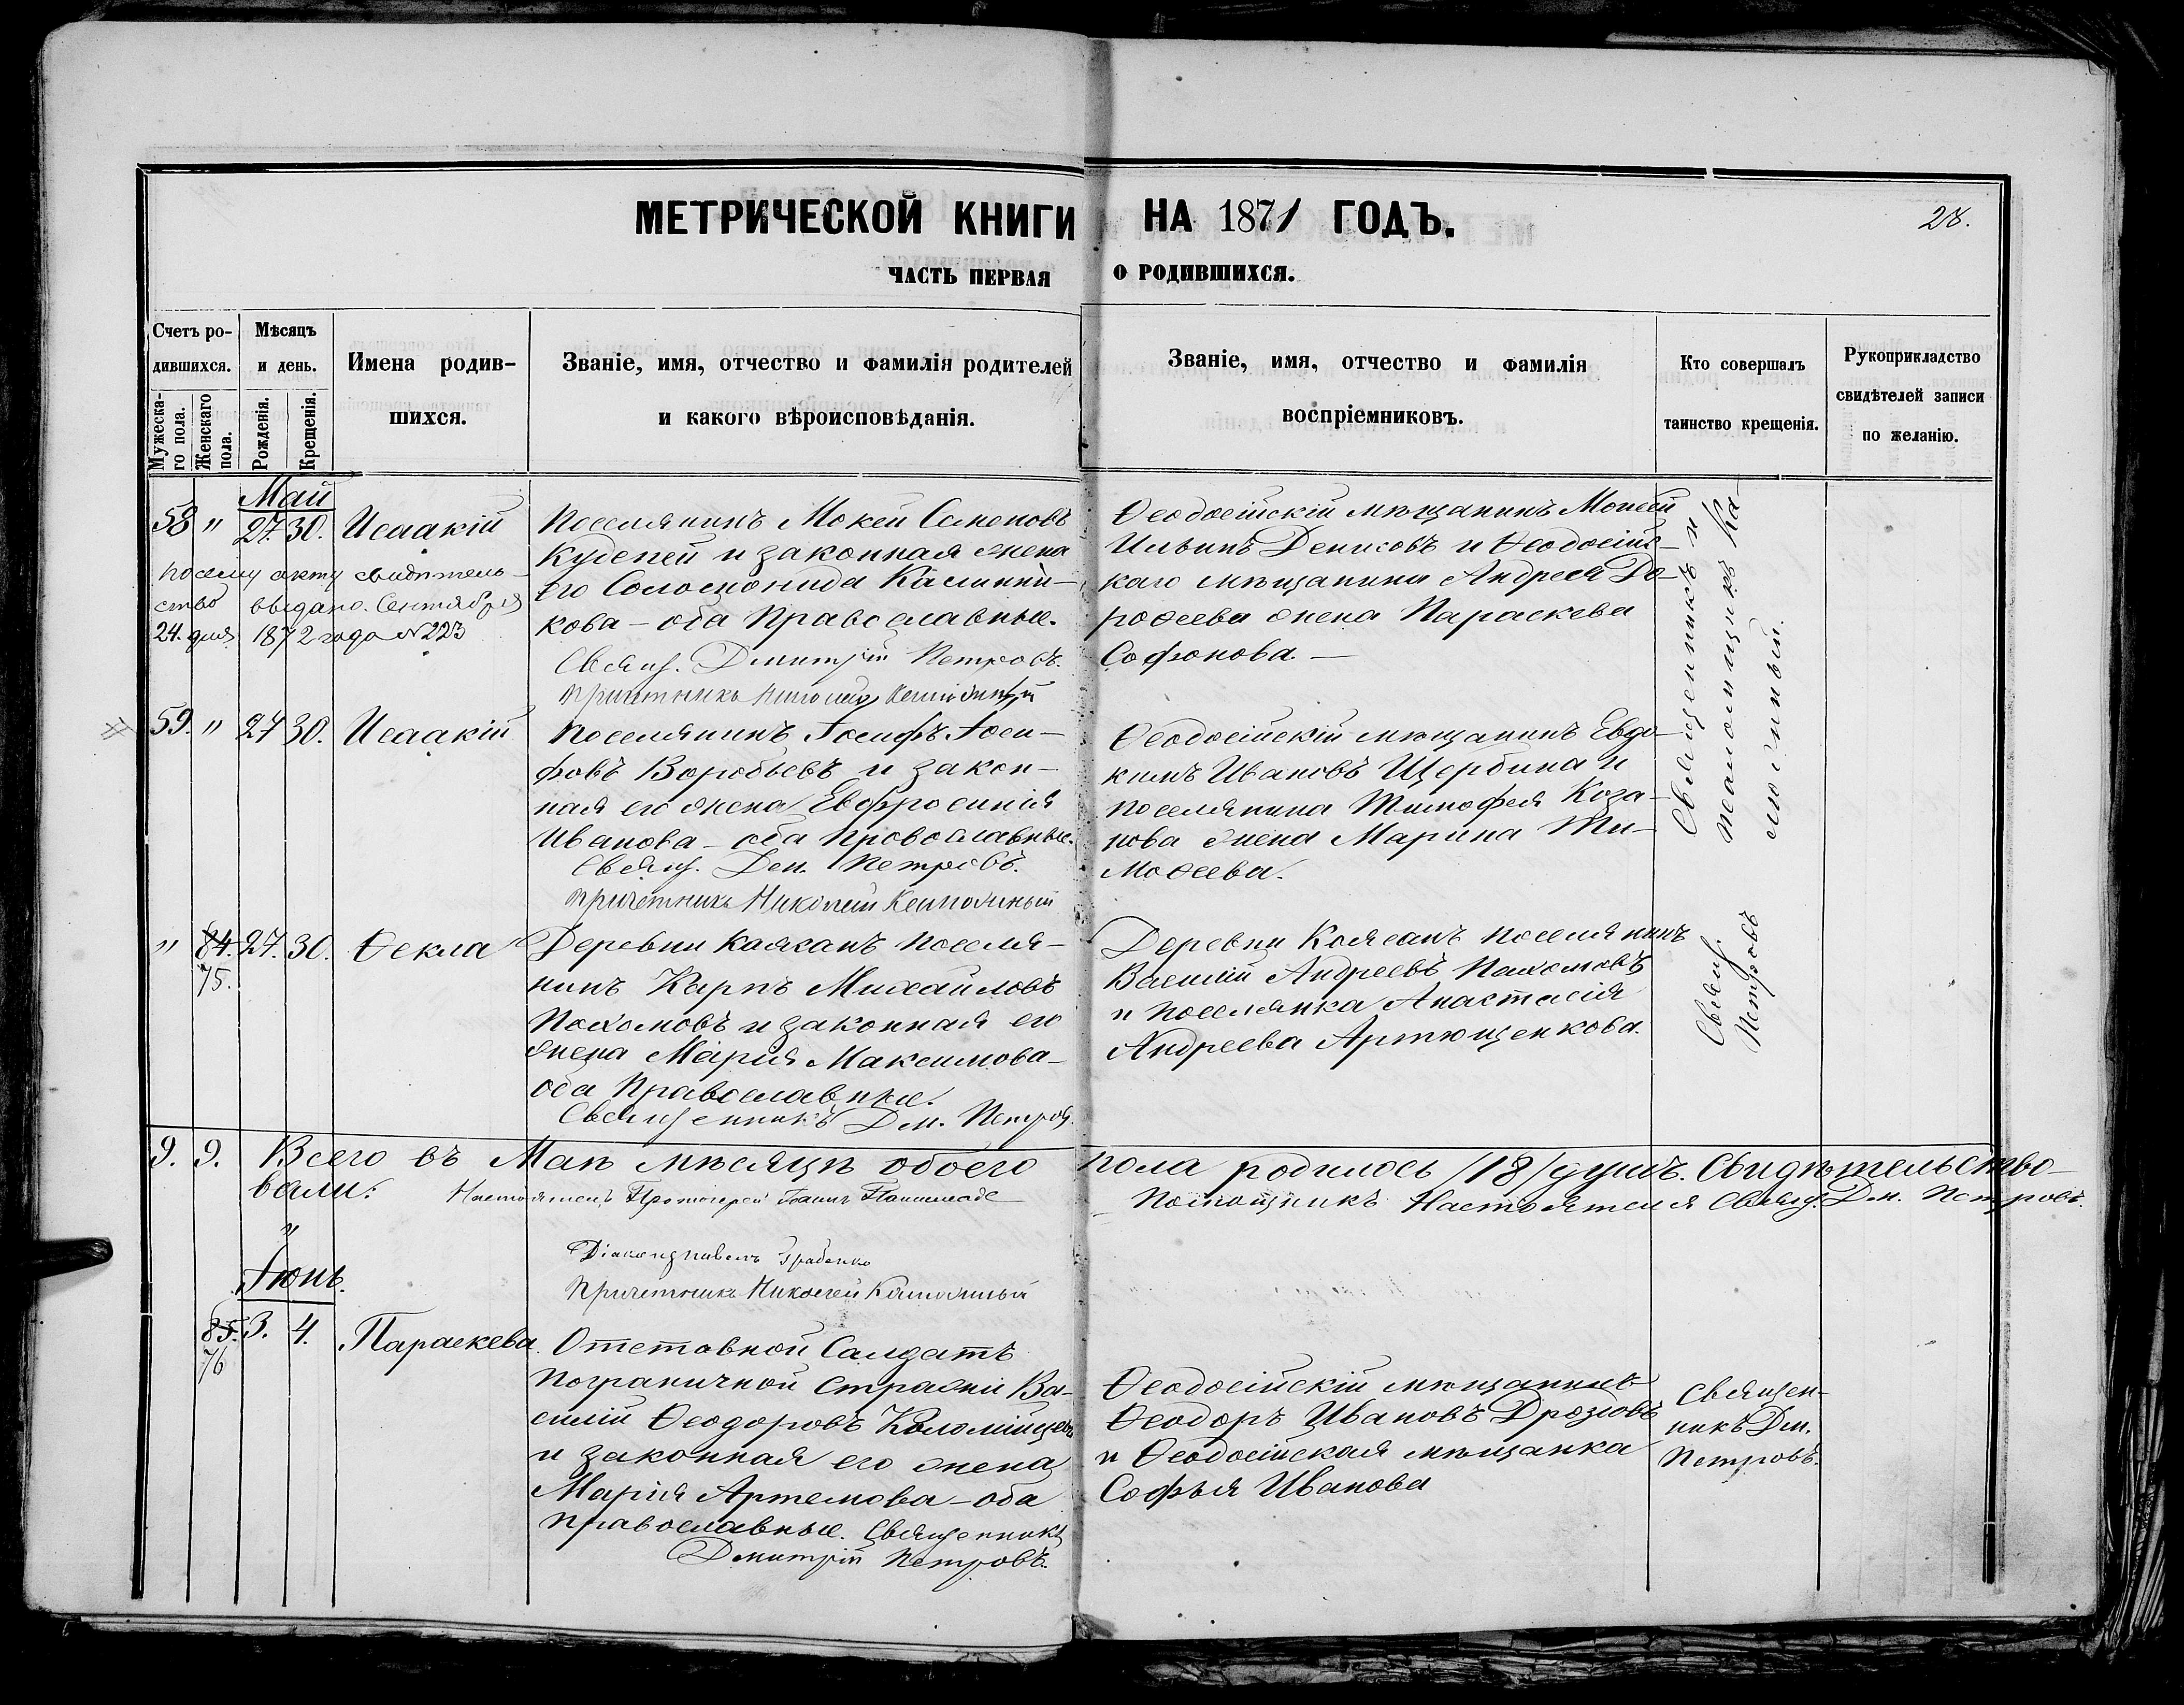 МЕТРИЧЕСКОЙ КНИГИ НА 1871 ГОДЪ.
28.
ЧАСТЬ ПЕРВАЯ О РОДИВШИХСЯ.
Счетъ ро-
дившихся.
Мужеска-
го пола.
Женскаго
пола.
Мѣсяцъ
и день.
Рожденія.
Крещенія.
Имена родив-
шихся.
Званіе, имя, отчество и фамилія родителей
и какого вѣроисповѣданія.
Званіе, имя, отчество и фамилія
воспріемниковъ.
Кто совершалъ
таинство крещенія.
Рукоприкладство
свидѣтелей записи
по желанію.
Май
58 " 27. 30. Исаакій
по сему акту свидѣтель-
ство выдано. Сентября
24. дня 1872 года № 223
Поселянинъ Мокей Семеновъ
Кудепей и законная жена
его Соломонида
кова - оба Православные.
Свящ. Дмитрій Петровъ.
Причетникъ Николай
Ѳеодосійскій мѣщанинъ Моисей
Ильинъ Денисовъ и Ѳеодосійс-
каго мѣщанина Андрея До-
роѳеева жена Параскева
Софонова —
Священникъ и
Ка-
59. " 27 30. Исаакій
Поселянинъ Іосифъ Іоси-
фовъ Воробьевъ и закон-
ная его жена Евфросинія
Иванова - оба Провославные.
Свящ. Дм. Петровъ.
Причетникъ Николай
Ѳеодосійскій мѣщанинъ Евдо-
кимъ Ивановъ Щербина и
поселянина Тимофея Коза-
нова жена Марина Ти-
моѳеева.
" 84. 27. 30. Ѳекла
75.
Деревни Коясанъ поселя-
нинъ Карпъ Михайловъ
Пахомовъ и законная его
жена Марія Максимова -
оба Православные.
Священникъ Дм. Петровъ.
Деревни Коясанъ поселянинъ
Василій Андреевъ Пахомовъ
и поселянка Анастасія
Андреева Артющенкова.
Свящ.
Петровъ
9. 9. Всего въ Маѣ мѣсяцѣ обоего пола родилось /18/ душъ. Свидѣтельство-
вали: Настоятель Протоіерей Іоаннъ
Помощникъ Настоятеля Свящ. Дм. Петровъ.
"
Діаконъ Павелъ Грабенко
Причетникъ Николай
Іюнь.
85. 3. 4. Параскева.
76
Отставной Салдатъ
Пограничной Стражи Ва-
силій Ѳеодоровъ Коломійцевъ
и законная его жена
Марія Артемова - оба
православные. Священникъ
Дмитрій Петровъ.
Ѳеодосійскій мѣщанинъ
Ѳеодоръ Ивановъ Дрозловъ
и Ѳеодосійская мѣщанка
Софья Иванова
Священ-
никъ Дм.
Петровъ.